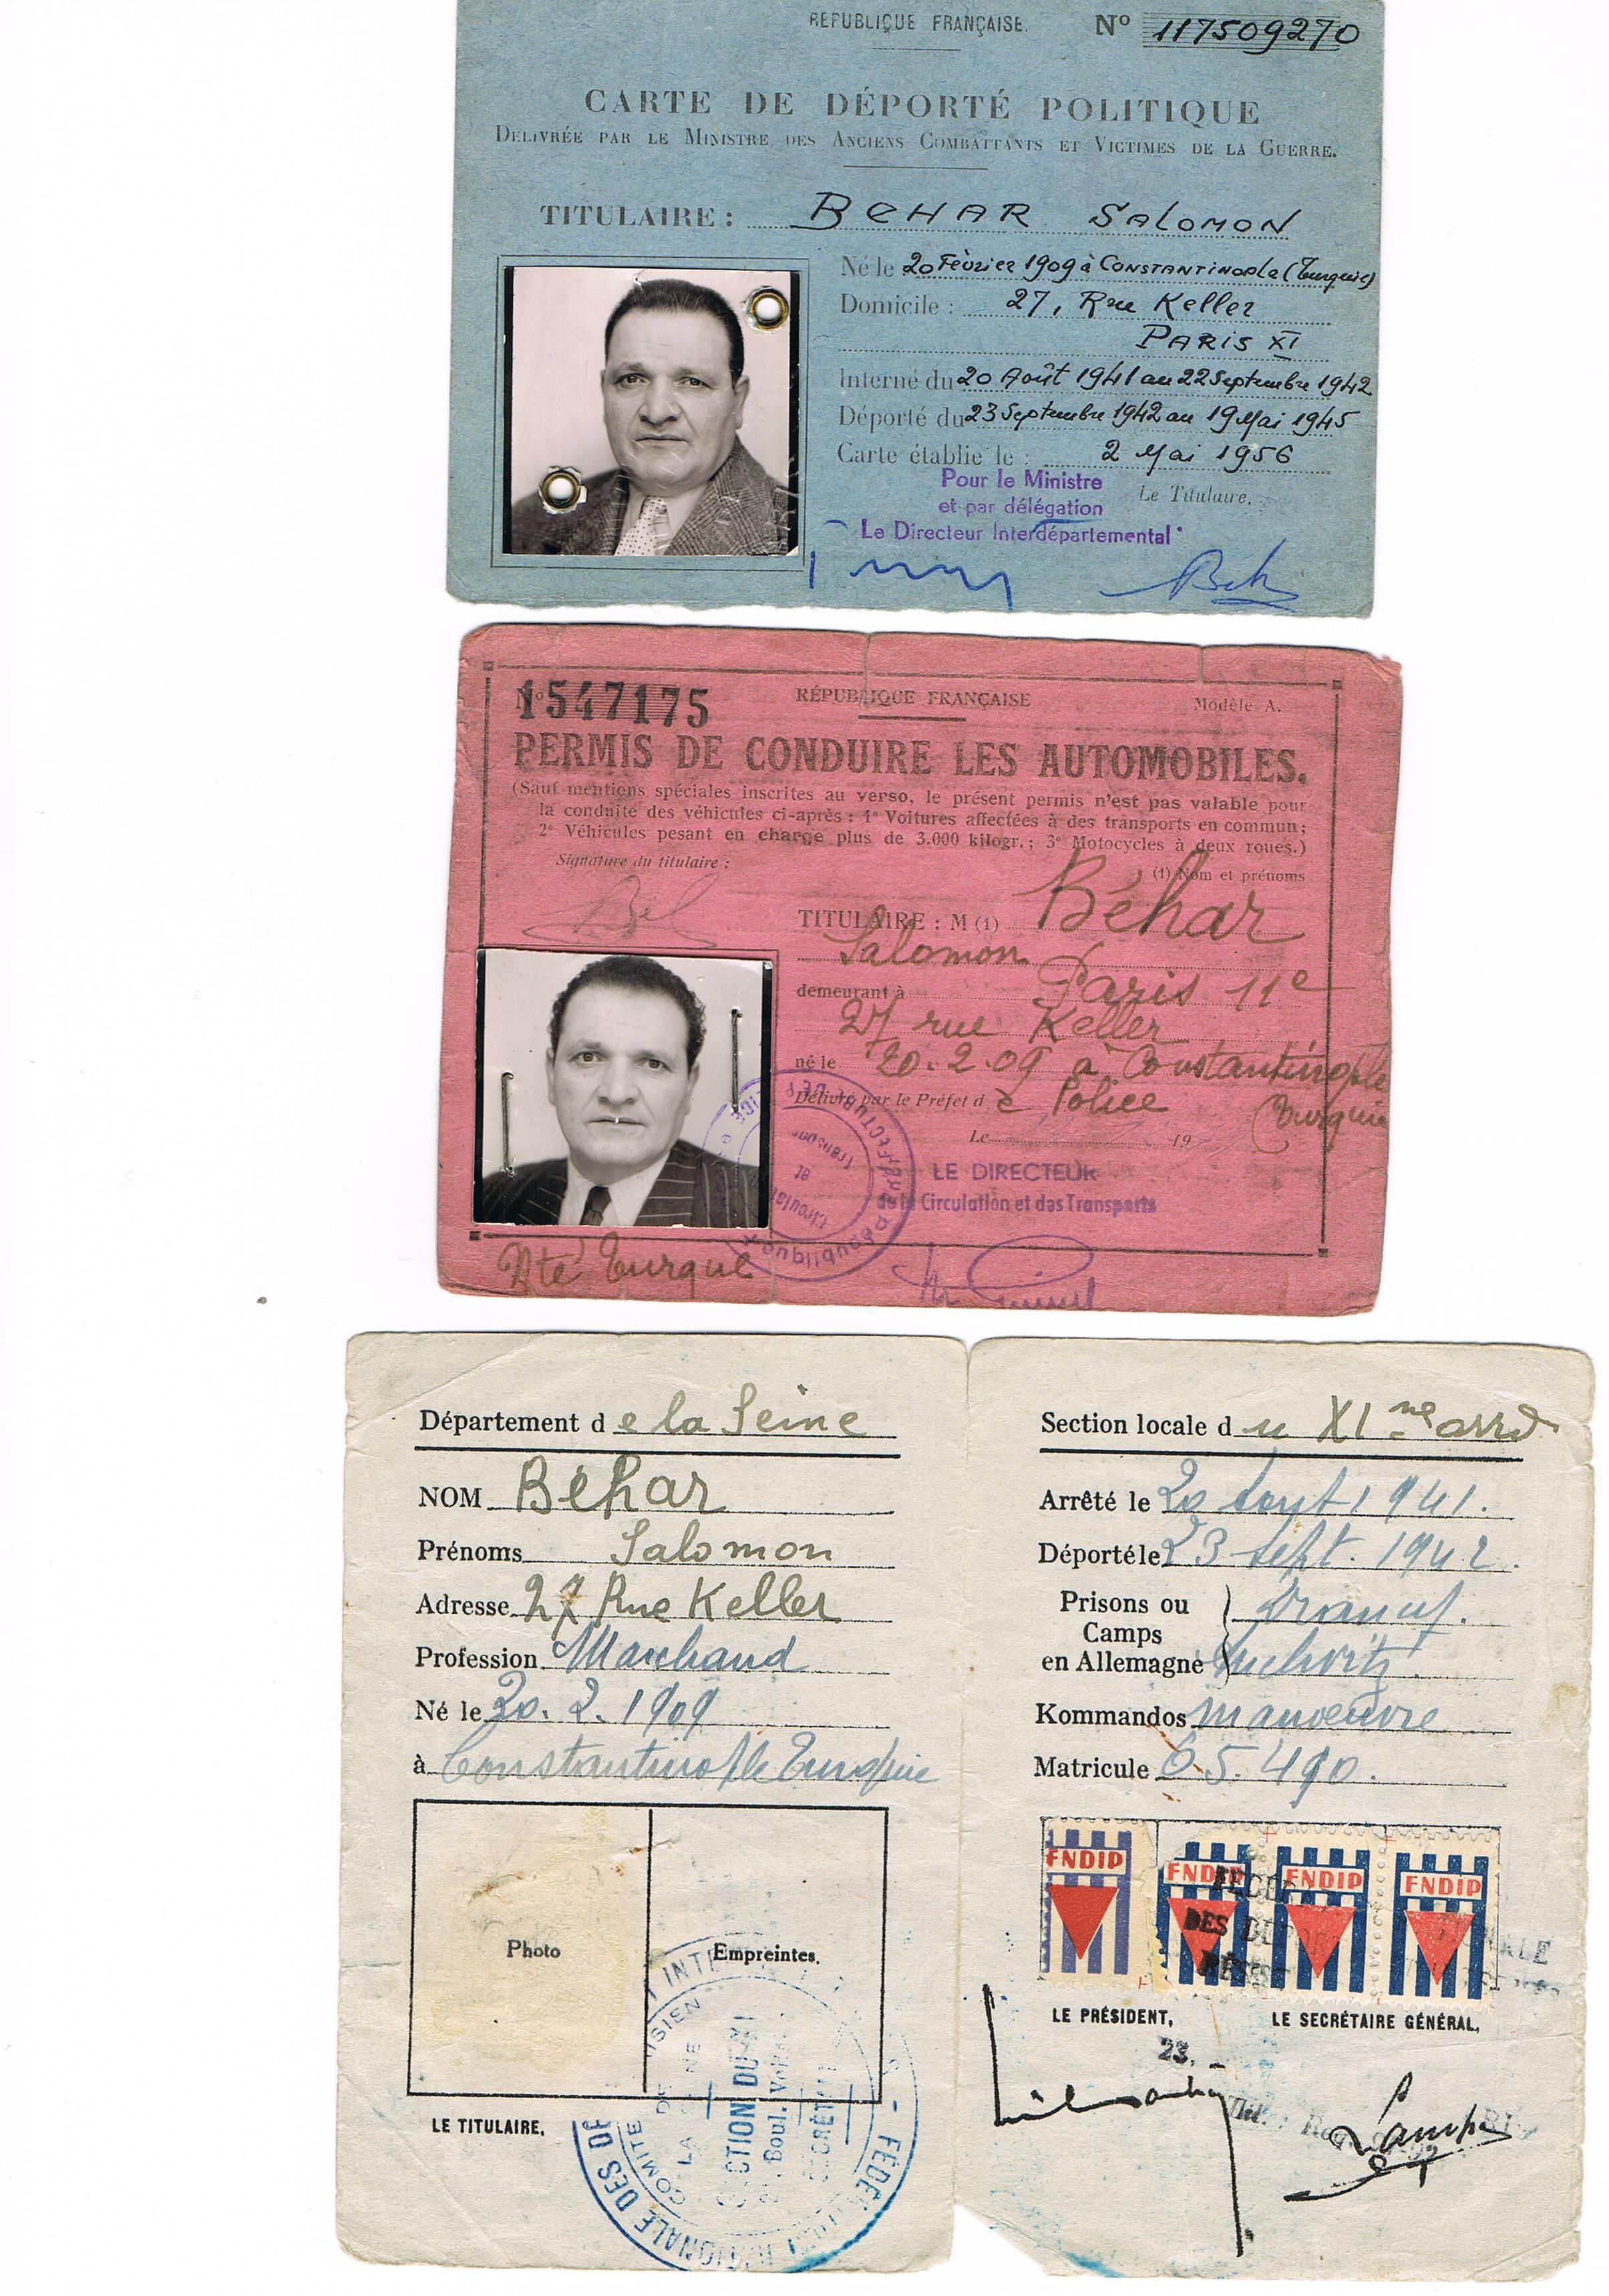 RÉPUBLIQUE FRANÇAISE.
Nº 117509270
CARTE DE DÉPORTÉ POLITIQUE
DÉLIVRÉE PAR LE MINISTRE DES ANCIENS COMBATTANTS ET VICTIMES DE LA GUERRE.
TITULAIRE : BEHAR SALOMON
Né le 20 Février 1909 à CONSTANTINOPLE (Turquie)
Domicile : 27, Rue Keller
PARIS XI
Interné du 20 Août 1941 au 22 Septembre 1942
Déporté du 23 Septembre 1942 au 19 Mai 1945
Carte établie le : 2 Mai 1956
Pour le Ministre
et par délégation
Le Titulaire.
Le Directeur Interdépartemental
Nº 1547175
RÉPUBLIQUE FRANÇAISE
Modèle A.
PERMIS DE CONDUIRE LES AUTOMOBILES.
(Sauf mentions spéciales inscrites au verso, le présent permis n'est pas valable pour
la conduite des véhicules ci-après : 1º Voitures affectées à des transports en commun;
2º Véhicules pesant en charge plus de 3.000 kilogr.; 3º Motocycles à deux roues.)
Signature du titulaire :
(1) Nom et prénoms
TITULAIRE : M (1) Béhar
Salomon
demeurant à Paris 11e
27 rue Keller
né le 20.2.09 à Constantinople
Turquie
Délivré par le Préfet de Police
Le 19
LE DIRECTEUR
de la Circulation et des Transports
Nté Turque
Département de la Seine
NOM Béhar
Prénoms Salomon
Adresse 27 Rue Keller
Profession Marchand
Né le 20.2.1909
à Constantinople Turquie
Photo
Empreintes.
LE TITULAIRE,
SECTION DU XI
Section locale du XI me arrd
Arrêté le 20 aout 1941.
Déporté le 23 sept. 1942.
Prisons ou
Camps
en Allemagne
Drancy.
Auchvitz.
Kommandos manoeuvre
Matricule 65.490.
FNDIP
FNDIP
FNDIP
FNDIP
LE PRÉSIDENT,
LE SECRÉTAIRE GÉNÉRAL,
23,